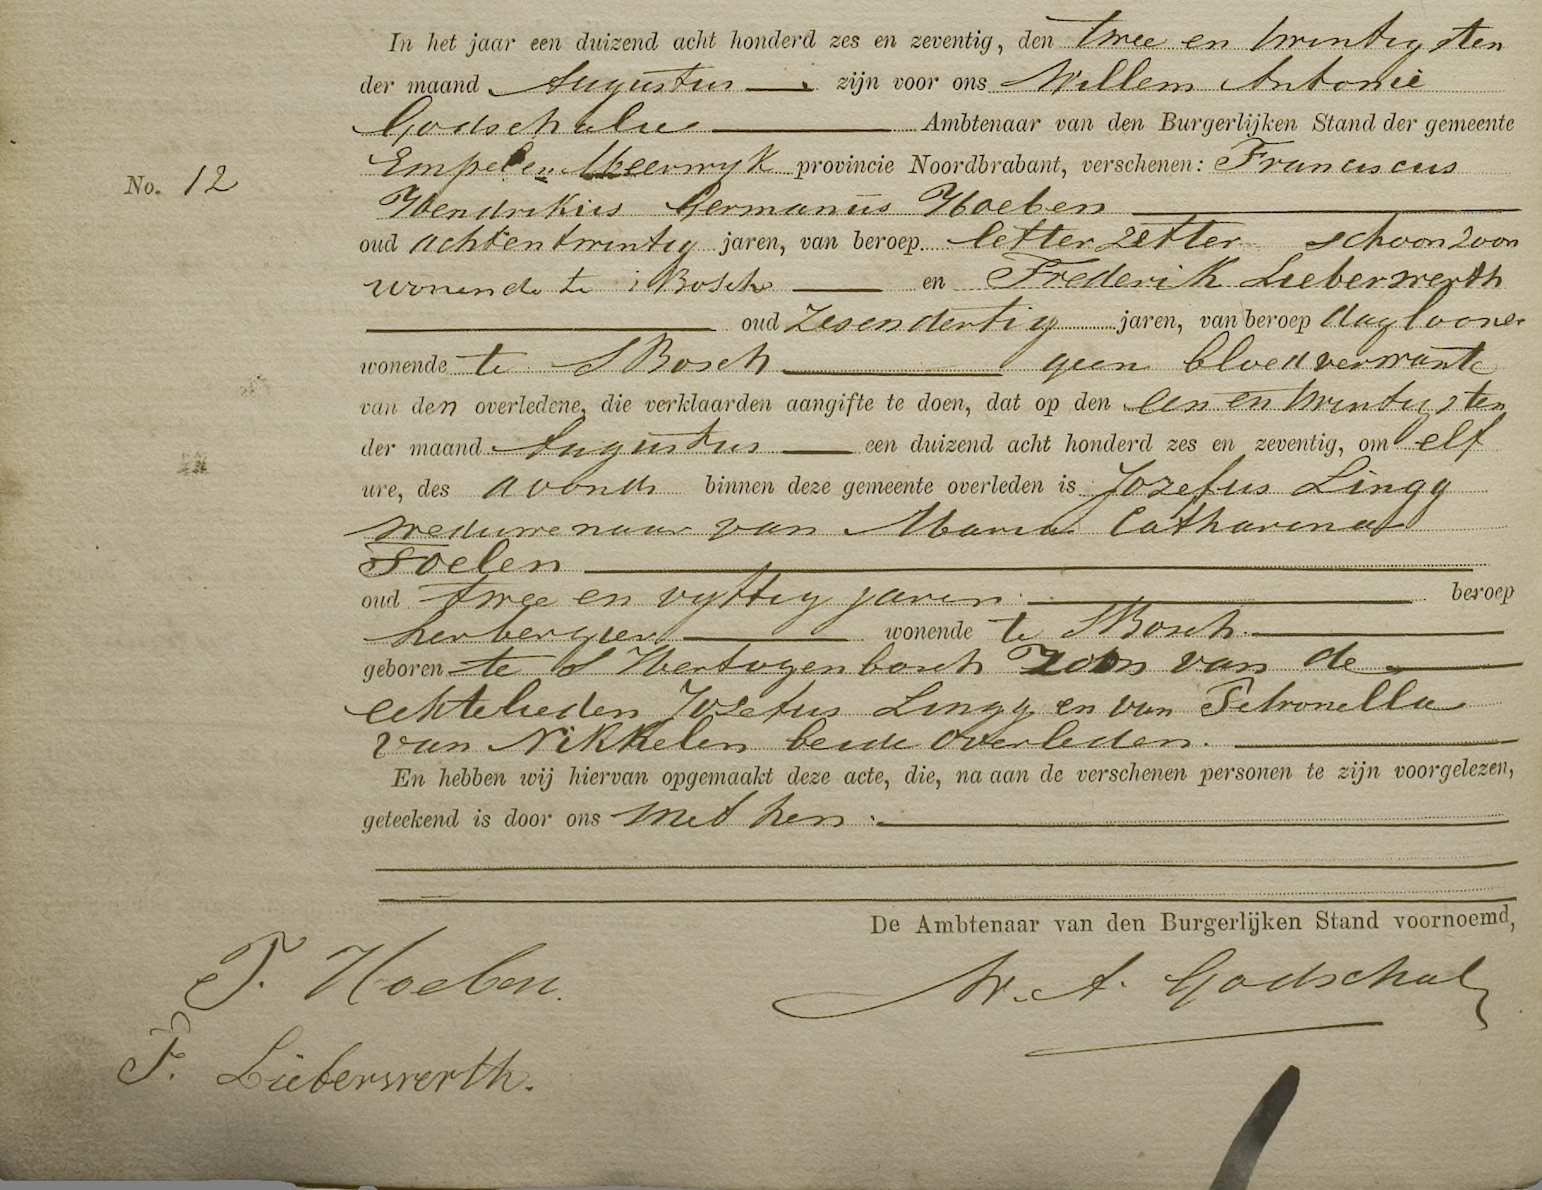 In het jaar een duizend acht honderd zes en zeventig, den twee en twintigsten
der maand Augustus zijn voor ons Willem Antonie
Godschalx Ambtenaar van den Burgerlijken Stand der gemeente
No. 12
Empel en Meerwyk provincie Noordbrabant, verschenen: Franciscus
Hendrikus Germanus Hoeben
oud achtentwintig jaren, van beroep letterzetter schoonzoon
wonende te sBosch en Frederik Lieberwerth
oud zesendertig jaren, van beroep daglooner
wonende te SBosch geen bloedverwante
van den overledene, die verklaarden aangifte te doen, dat op den een en twintigsten
der maand Augustus een duizend acht honderd zes en zeventig, om elf
ure, des avonds binnen deze gemeente overleden is Jozefus Lingg
weduwenaar van Maria Catharina
Foelen
oud twee en vyftig jaren beroep
herbergier wonende te SBosch
geboren te sHertogenbosch Zoon van de
echtelieden Jozefus Lingg en van Petronella
van Nikkelen beide overleden.
En hebben wij hiervan opgemaakt deze acte, die, na aan de verschenen personen te zijn voorgelezen,
geteekend is door ons met hen.
De Ambtenaar van den Burgerlijken Stand voornoemd,
F. Hoeben.
W. A. Godschalx
F. Lieberwerth.